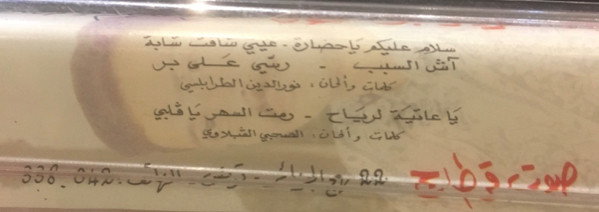 سلام عليكم يا حضارة - عيني شافت شابة
آش السبب - رمتي على بر
كلمات وألحان: نور الدين الطرابلسي
يا عاتية لرياح - رمت السهر يا قلبي
كلمات وألحان: الصحبي الشعلاوي
صوت قرطاج 22 نهج الجزائر - تونس - الهاتف: 336.042